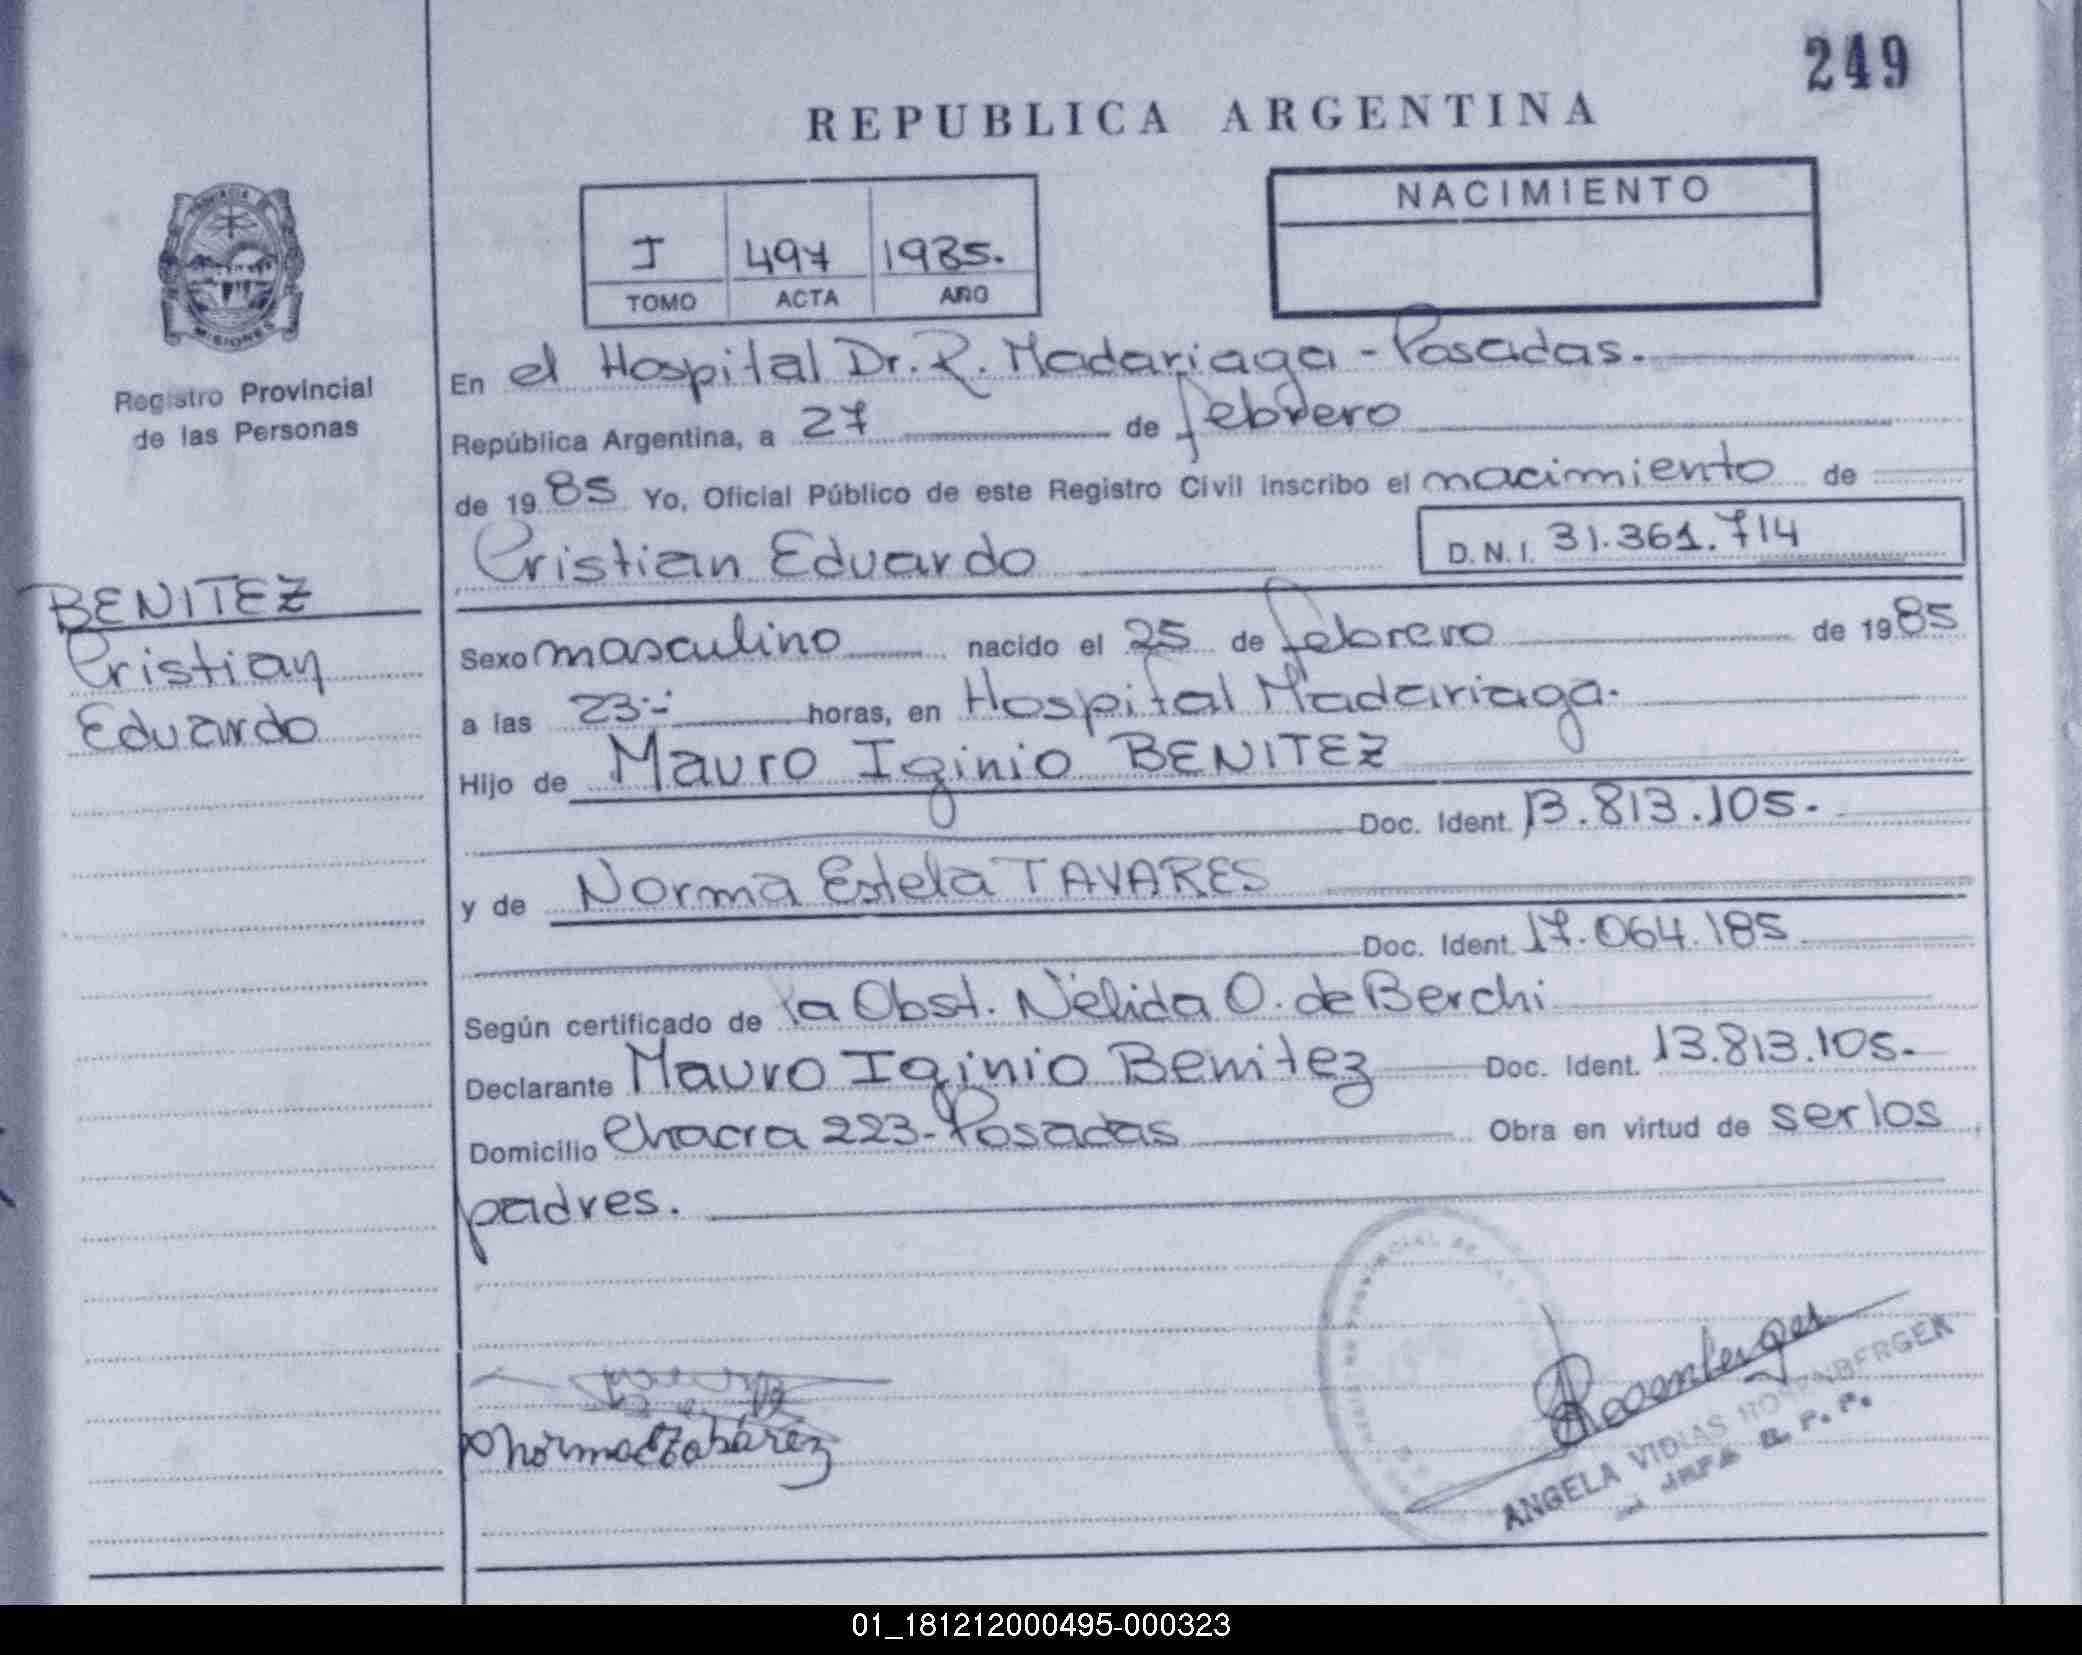 249
REPUBLICA ARGENTINA
NACIMIENTO
I 497 1985.
TOMO ACTA AÑO
PROVINCIA
MISIONES
Registro Provincial
de las Personas
En el Hospital Dr. R. Madariaga - Posadas.
República Argentina, a 27 de febrero
de 1985 Yo, Oficial Público de este Registro Civil inscribo el nacimiento de
Cristian Eduardo D.N.I. 31.361.714
BENITEZ
Cristian
Eduardo
Sexo masculino nacido el 25 de febrero de 1985
a las 23:- horas, en Hospital Madariaga.
Hijo de Mauro Iginio BENITEZ
Doc. Ident. 13.813.105.
y de Norma Estela TAVARES
Doc. Ident. 17.064.185
Según certificado de la Obst. Nélida O. de Berchi
Declarante Mauro Iginio Benitez Doc. Ident. 13.813.105.
Domicilio Chacra 223-Posadas Obra en virtud de ser los
padres.
PROVINCIAL DE
Rosenberger
ANGELA VIDIAS ROSENBERGER
JEFA R. P. P.
01_181212000495-000323